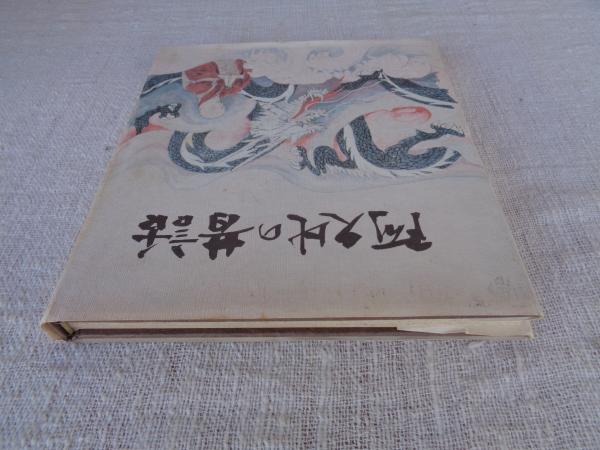 阿久比の昔話